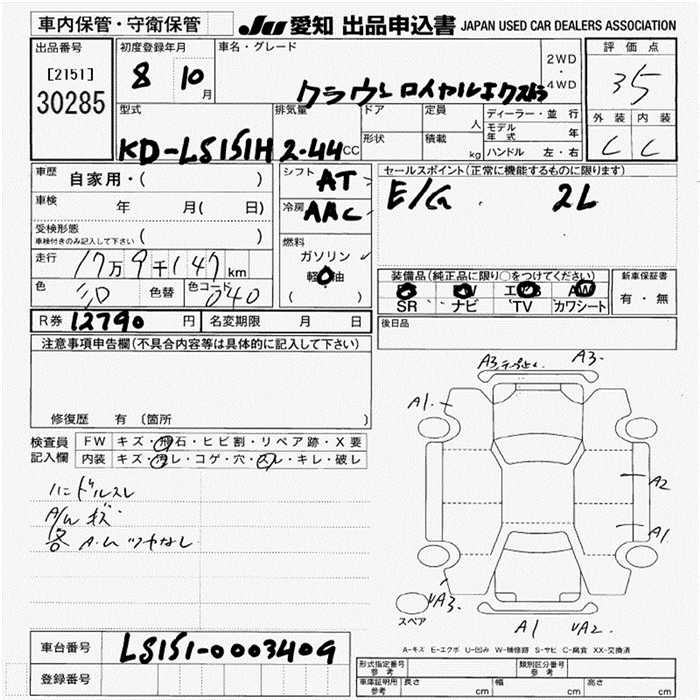 車内保管・守衛保管
JU 愛知 出品申込書 JAPAN USED CAR DEALERS ASSOCIATION
出品番号
[2151]
30285
初度登録年月
8 10 月
車名・グレード
クラウン ロイヤルエクストラ
2WD
・
4WD
評価点
35
外装 内装
C C
型式
KD-LS151H
排気量
2.44 CC
ドア
形状
定員 人
積載 kg
ディーラー・並行
モデル年式 年
ハンドル 左・右
車歴
自家用・( )
車検 年 月( 日)
受検形態
車検付きのみ記入して下さい ( )
走行 17万9千147 km
色
色替
色コード 040
シフト AT
冷房 AAC
燃料
ガソリン
軽油
( )
セールスポイント(正常に機能するものに限ります)
E/G . 2L
装備品(純正品に限り○をつけてください)
AW
SR ナビ TV カワシート
新車保証書
有・無
後日品
R券 12790 円
名変期限 月 日
注意事項申告欄(不具合内容等は具体的に記入して下さい)
修復歴 有 〔箇所 〕
検査員
記入欄
FW キズ・飛石・ヒビ割・リペア跡・X要
内装 キズ・汚レ・コゲ・穴・スレ・キレ・破レ
ハンドルスレ
A/W キズ
各 A.U ツヤなし
A3 A3
A1
A2
A1
UA3
A1 UA2
スペア
A-キズ E-エクボ U-凹み W-補修跡 S-サビ C-腐食 XX-交換済
車台番号 LS151-0003409
登録番号
形式指定番号 参考
類別区分番号 参考
車庫証明用 参考 長さ cm 幅 cm 高さ cm